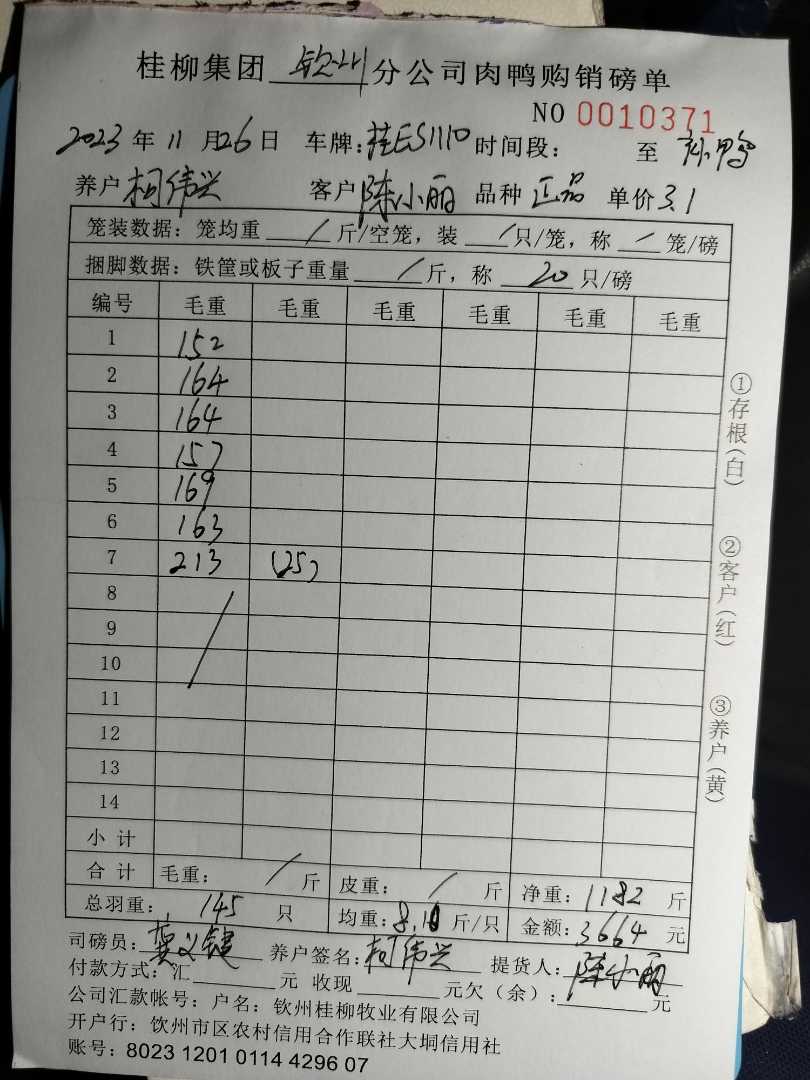 桂柳集团 钦州 分公司肉鸭购销磅单
NO 0010371
2023 年 11 月 26 日 车牌：桂ES1110 时间段： 至
养户 柯伟兴 客户 陈小丽 品种 正品 单价 3.1
笼装数据：笼均重 / 斤/空笼，装 / 只/笼，称 / 笼/磅
捆脚数据：铁筐或板子重量 / 斤，称 20 只/磅
编号 毛重 毛重 毛重 毛重 毛重 毛重
1 152
2 164
3 164
4 157
5 169
6 163
7 213 (25)
8
9
10
11
12
13
14
小计
合计 毛重： / 斤 皮重： / 斤 净重：1182 斤
总羽重： 145 只 均重：8.10 斤/只 金额：3664 元
司磅员： 养户签名：柯伟兴 提货人：陈小丽
付款方式：汇 元 收现 元欠（余）： 元
公司汇款帐号：户名：钦州桂柳牧业有限公司
开户行：饮州市区农村信用合作联社大垌信用社
账号：8023 1201 0114 4296 07
①存根（白）
②客户（红）
③养户（黄）